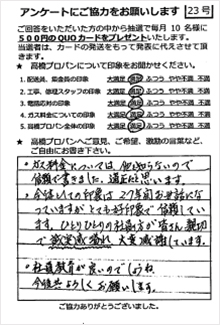 アンケートにご協力をお願いします 23号
ご回答をいただいた方の中から抽選で毎月10名様に
500円のQUOカードをプレゼントいたします。
当選者は、カードの発送をもって発表に代えさせて頂
きます。
★高橋プロパンについて印象をお聞かせください★
1.配送員、 の印象 大満足 満足 ふつう やや不満 不満
2.工事、修理スタッフの印象 大満足 満足 ふつう やや不満 不満
3.電話応対の印象 大満足 満足 ふつう やや不満 不満
4.ガス料金についての印象 大満足 満足 ふつう やや不満 不満
5.高橋プロパン全体の印象 大満足 満足 ふつう やや不満 不満
★高橋プロパンへご意見、ご希望、激励の言葉など、
ご自由にお書き下さい。★
・ガス料金については 知らないので
信頼 ました。適正だと思います。
・ の印象は27年間お世話に
なっていますがとても好印象で信頼してい
ます。ひとりひとりの社員の方が皆さん親切
で 大変感謝しています。
・社員教育が良いのでしょうね。
今後共よろしくお願いします。
ご協力ありがとうございました。